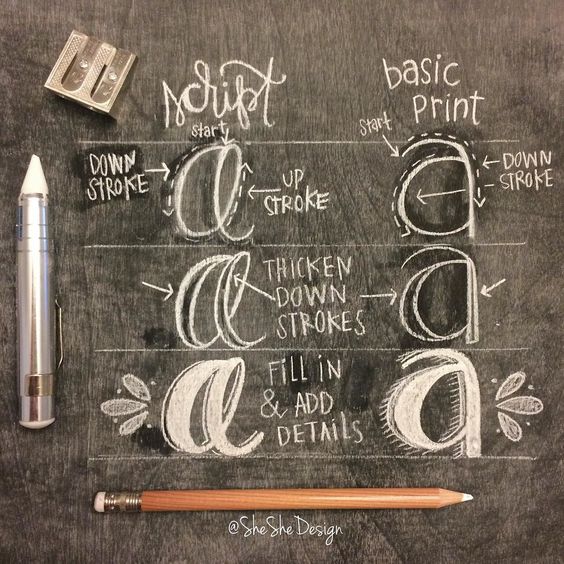 script
basic
print
start
start
a
a
DOWN
STROKE
UP
STROKE
DOWN
STROKE
a
THICKEN
DOWN
STROKES
a
a
FILL IN
& ADD
DETAILS
a
@SheSheDesign